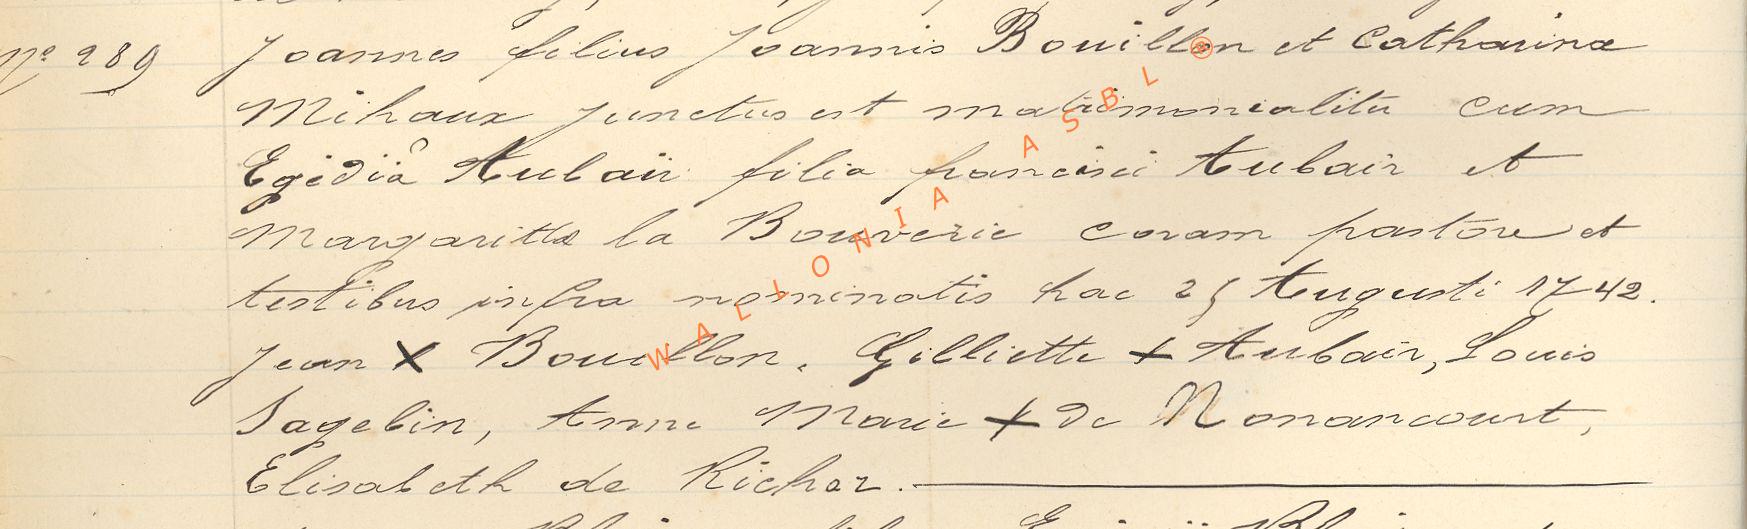 Nº 289 Joannes filius Joannis Bouillon et Catharinæ
Mihaux junctus est matrimonialitu cum
Egidiâ Aubair filia francisci Aubair et
Margaritæ la Bouverie coram pastore et
testibus infra nominatis hac 25 Augusti 1742.
Jean X Bouillon, Gilliette + Aubair, Louis
Sagebin, Anne Marie + de Nonancourt,
Elisabeth de Richar.
WALLONIA ASBL ®